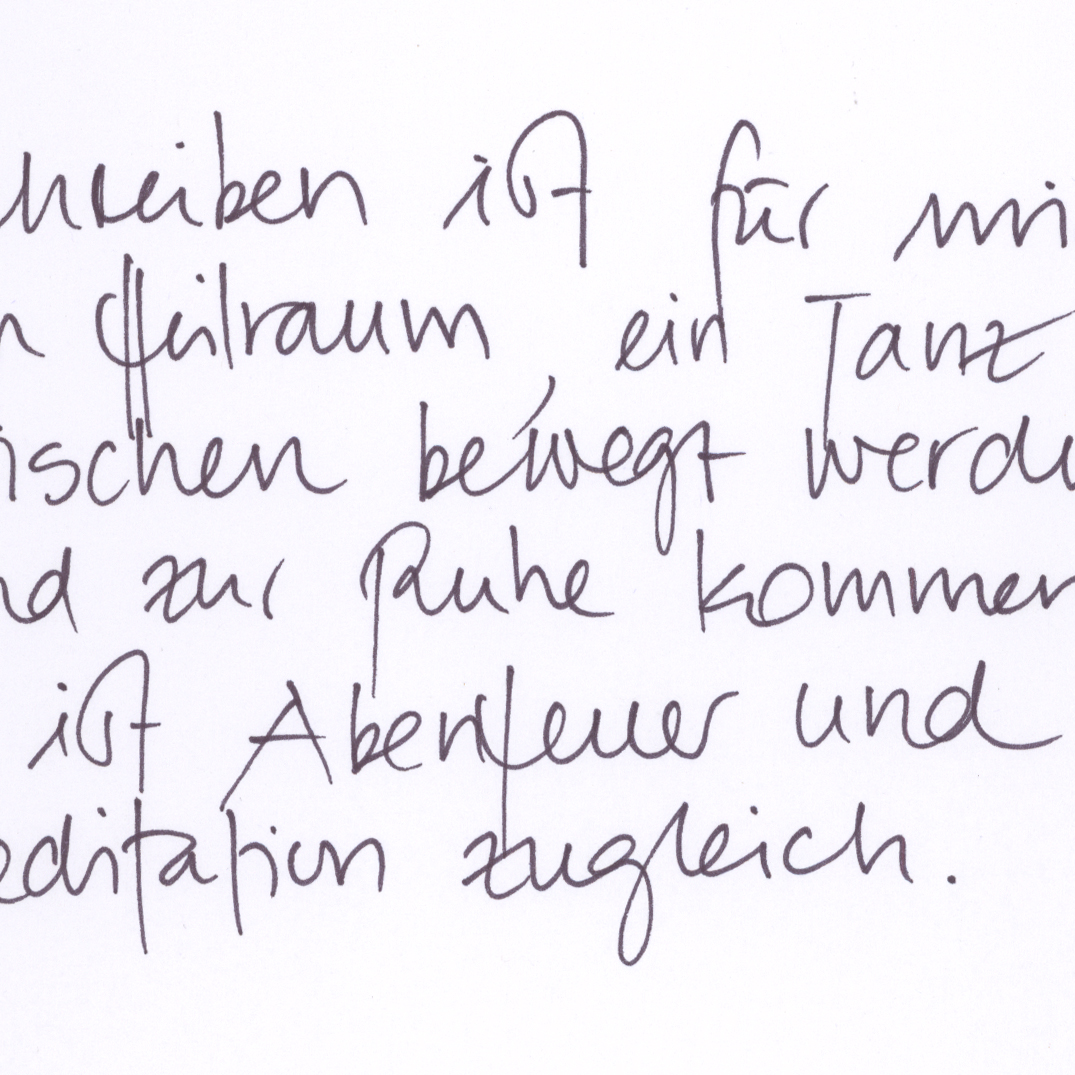 chreiben ist für mi
n Heilraum, ein Tanz
ischen bewegt werde
nd zur Ruhe kommen
ist Abenteuer und
editation zugleich.